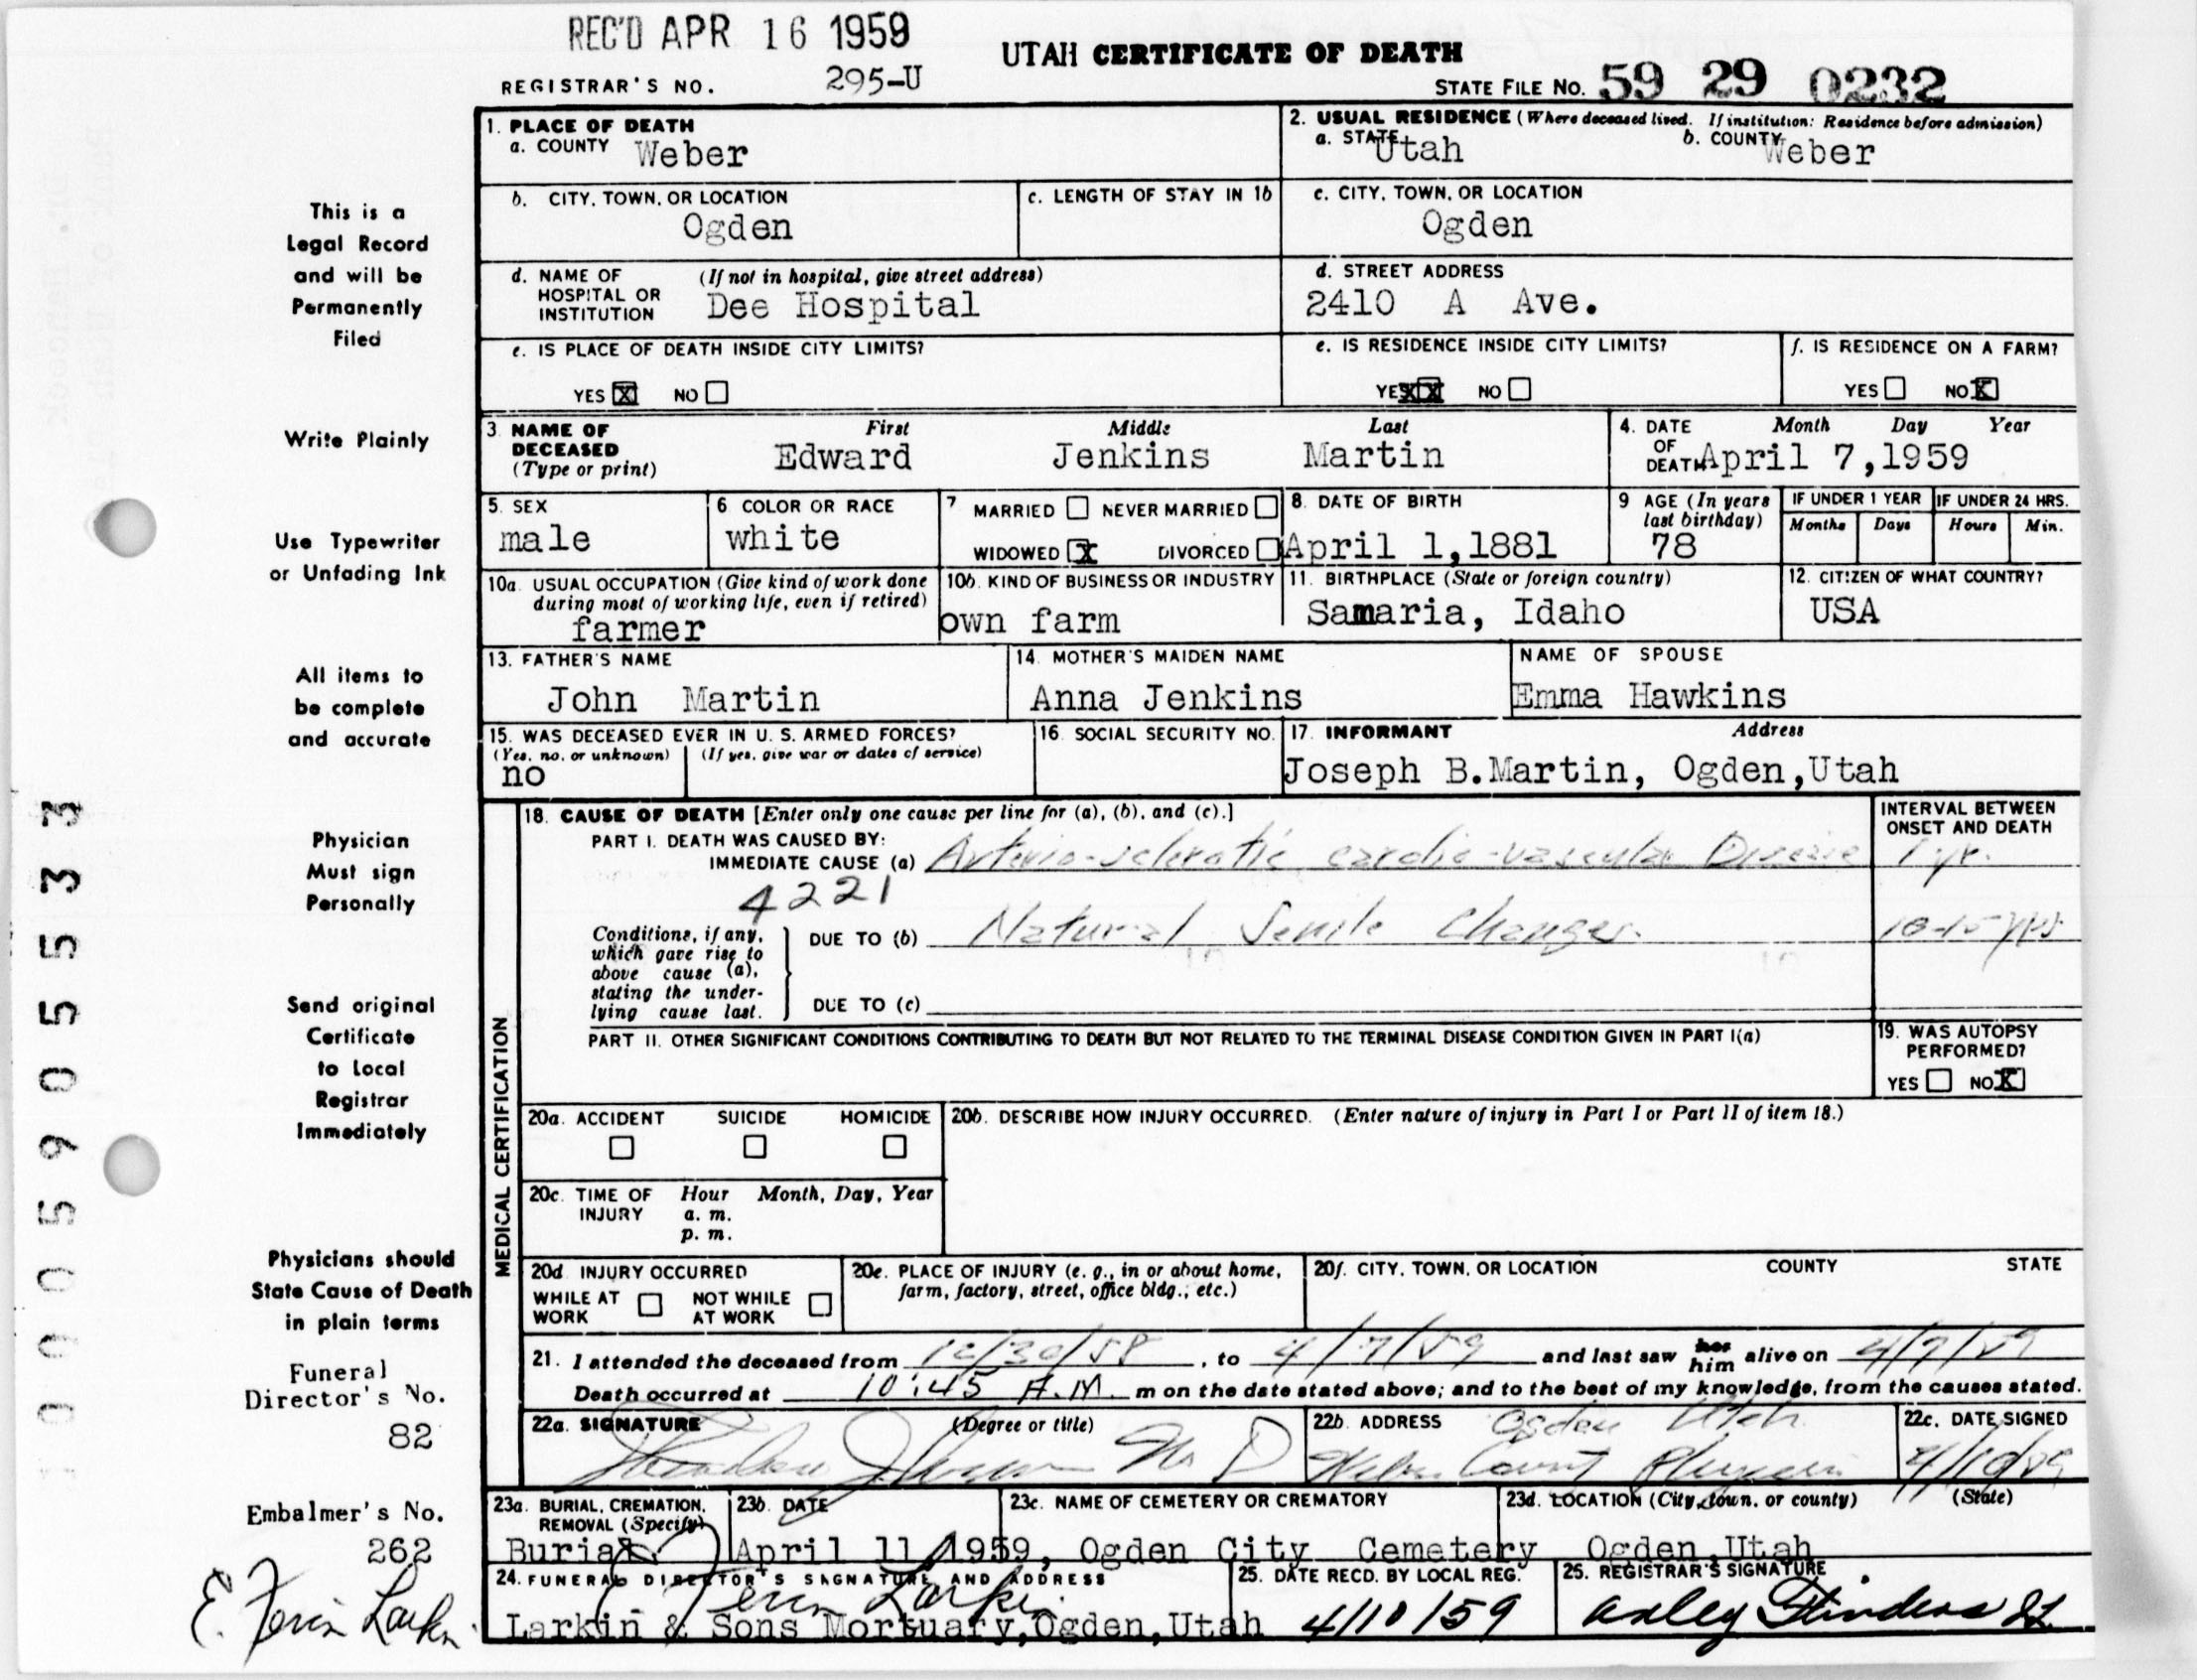 REC'D APR 16 1959
UTAH CERTIFICATE OF DEATH
REGISTRAR'S NO. 295-U
STATE FILE NO. 59 29 0232
1. PLACE OF DEATH
a. COUNTY Weber
2. USUAL RESIDENCE (Where deceased lived. If institution: Residence before admission)
a. STATE Utah b. COUNTY Weber
b. CITY, TOWN, OR LOCATION
Ogden
c. LENGTH OF STAY IN 1b
c. CITY, TOWN, OR LOCATION
Ogden
d. NAME OF HOSPITAL OR INSTITUTION (If not in hospital, give street address)
Dee Hospital
d. STREET ADDRESS
2410 A Ave.
e. IS PLACE OF DEATH INSIDE CITY LIMITS?
YES X NO
e. IS RESIDENCE INSIDE CITY LIMITS?
YES XX NO
f. IS RESIDENCE ON A FARM?
YES NO X
3. NAME OF DECEASED (Type or print)
First Middle Last
Edward Jenkins Martin
4. DATE OF DEATH Month Day Year
April 7,1959
5. SEX
male
6 COLOR OR RACE
white
7 MARRIED NEVER MARRIED
WIDOWED X DIVORCED
8. DATE OF BIRTH
April 1,1881
9 AGE (In years last birthday)
78
IF UNDER 1 YEAR
Months Days
IF UNDER 24 HRS.
Hours Min.
10a. USUAL OCCUPATION (Give kind of work done during most of working life, even if retired)
farmer
10b. KIND OF BUSINESS OR INDUSTRY
own farm
11. BIRTHPLACE (State or foreign country)
Samaria, Idaho
12. CITIZEN OF WHAT COUNTRY?
USA
13. FATHER'S NAME
John Martin
14. MOTHER'S MAIDEN NAME
Anna Jenkins
NAME OF SPOUSE
Emma Hawkins
15. WAS DECEASED EVER IN U. S. ARMED FORCES?
(Yes, no, or unknown) (If yes, give war or dates of service)
no
16. SOCIAL SECURITY NO.
17. INFORMANT Address
Joseph B.Martin, Ogden,Utah
MEDICAL CERTIFICATION
18. CAUSE OF DEATH [Enter only one cause per line for (a), (b), and (c).]
INTERVAL BETWEEN ONSET AND DEATH
PART I. DEATH WAS CAUSED BY:
IMMEDIATE CAUSE (a) Arterio-sclerotic cardio-vascular Disease 1 yr.
4221
Conditions, if any, which gave rise to above cause (a), stating the underlying cause last.
DUE TO (b) Natural Senile Changes. 10-15 yrs.
DUE TO (c)
PART II. OTHER SIGNIFICANT CONDITIONS CONTRIBUTING TO DEATH BUT NOT RELATED TO THE TERMINAL DISEASE CONDITION GIVEN IN PART I(a)
19. WAS AUTOPSY PERFORMED?
YES NO X
20a. ACCIDENT SUICIDE HOMICIDE
20b. DESCRIBE HOW INJURY OCCURRED. (Enter nature of injury in Part I or Part II of item 18.)
20c. TIME OF INJURY Hour Month, Day, Year
a. m.
p. m.
20d INJURY OCCURRED
WHILE AT WORK NOT WHILE AT WORK
20e. PLACE OF INJURY (e. g., in or about home, farm, factory, street, office bldg., etc.)
20f. CITY, TOWN, OR LOCATION COUNTY STATE
21. I attended the deceased from 10/30/58, to 4/7/59 and last saw her him alive on 4/7/59
Death occurred at 10:45 A.M. m on the date stated above; and to the best of my knowledge, from the causes stated.
22a. SIGNATURE (Degree or title)
M D
22b. ADDRESS Ogden Utah
Weber County Physician
22c. DATE SIGNED
4/10/59
23a. BURIAL, CREMATION, REMOVAL (Specify)
Burial
23b. DATE
April 11, 1959,
23c. NAME OF CEMETERY OR CREMATORY
Ogden City Cemetery
23d. LOCATION (City, town, or county) (State)
Ogden,Utah
24. FUNERAL DIRECTOR'S SIGNATURE AND ADDRESS
E Ferin Larkin
Larkin & Sons Mortuary,Ogden,Utah
25. DATE RECD. BY LOCAL REG.
4/10/59
25. REGISTRAR'S SIGNATURE
This is a
Legal Record
and will be
Permanently
Filed
Write Plainly
Use Typewriter
or Unfading Ink
All items to
be complete
and accurate
Physician
Must sign
Personally
Send original
Certificate
to Local
Registrar
Immediately
Physicians should
State Cause of Death
in plain terms
Funeral
Director's No.
82
Embalmer's No.
262
E. Ferin Larkin